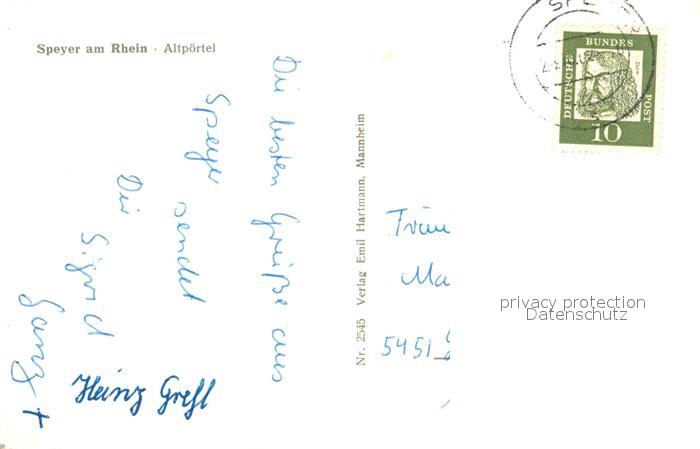 Speyer am Rhein · Altpörtel
Die besten Grüße aus
Speyer sendet
Dir Sigrid
Heinz Greßl
Nr. 2545 Verlag Emil Hartmann, Mannheim
SPE
DEUTSCHE
BUNDES
POST
Dürer
10
Ma
5451
privacy protection
Datenschutz